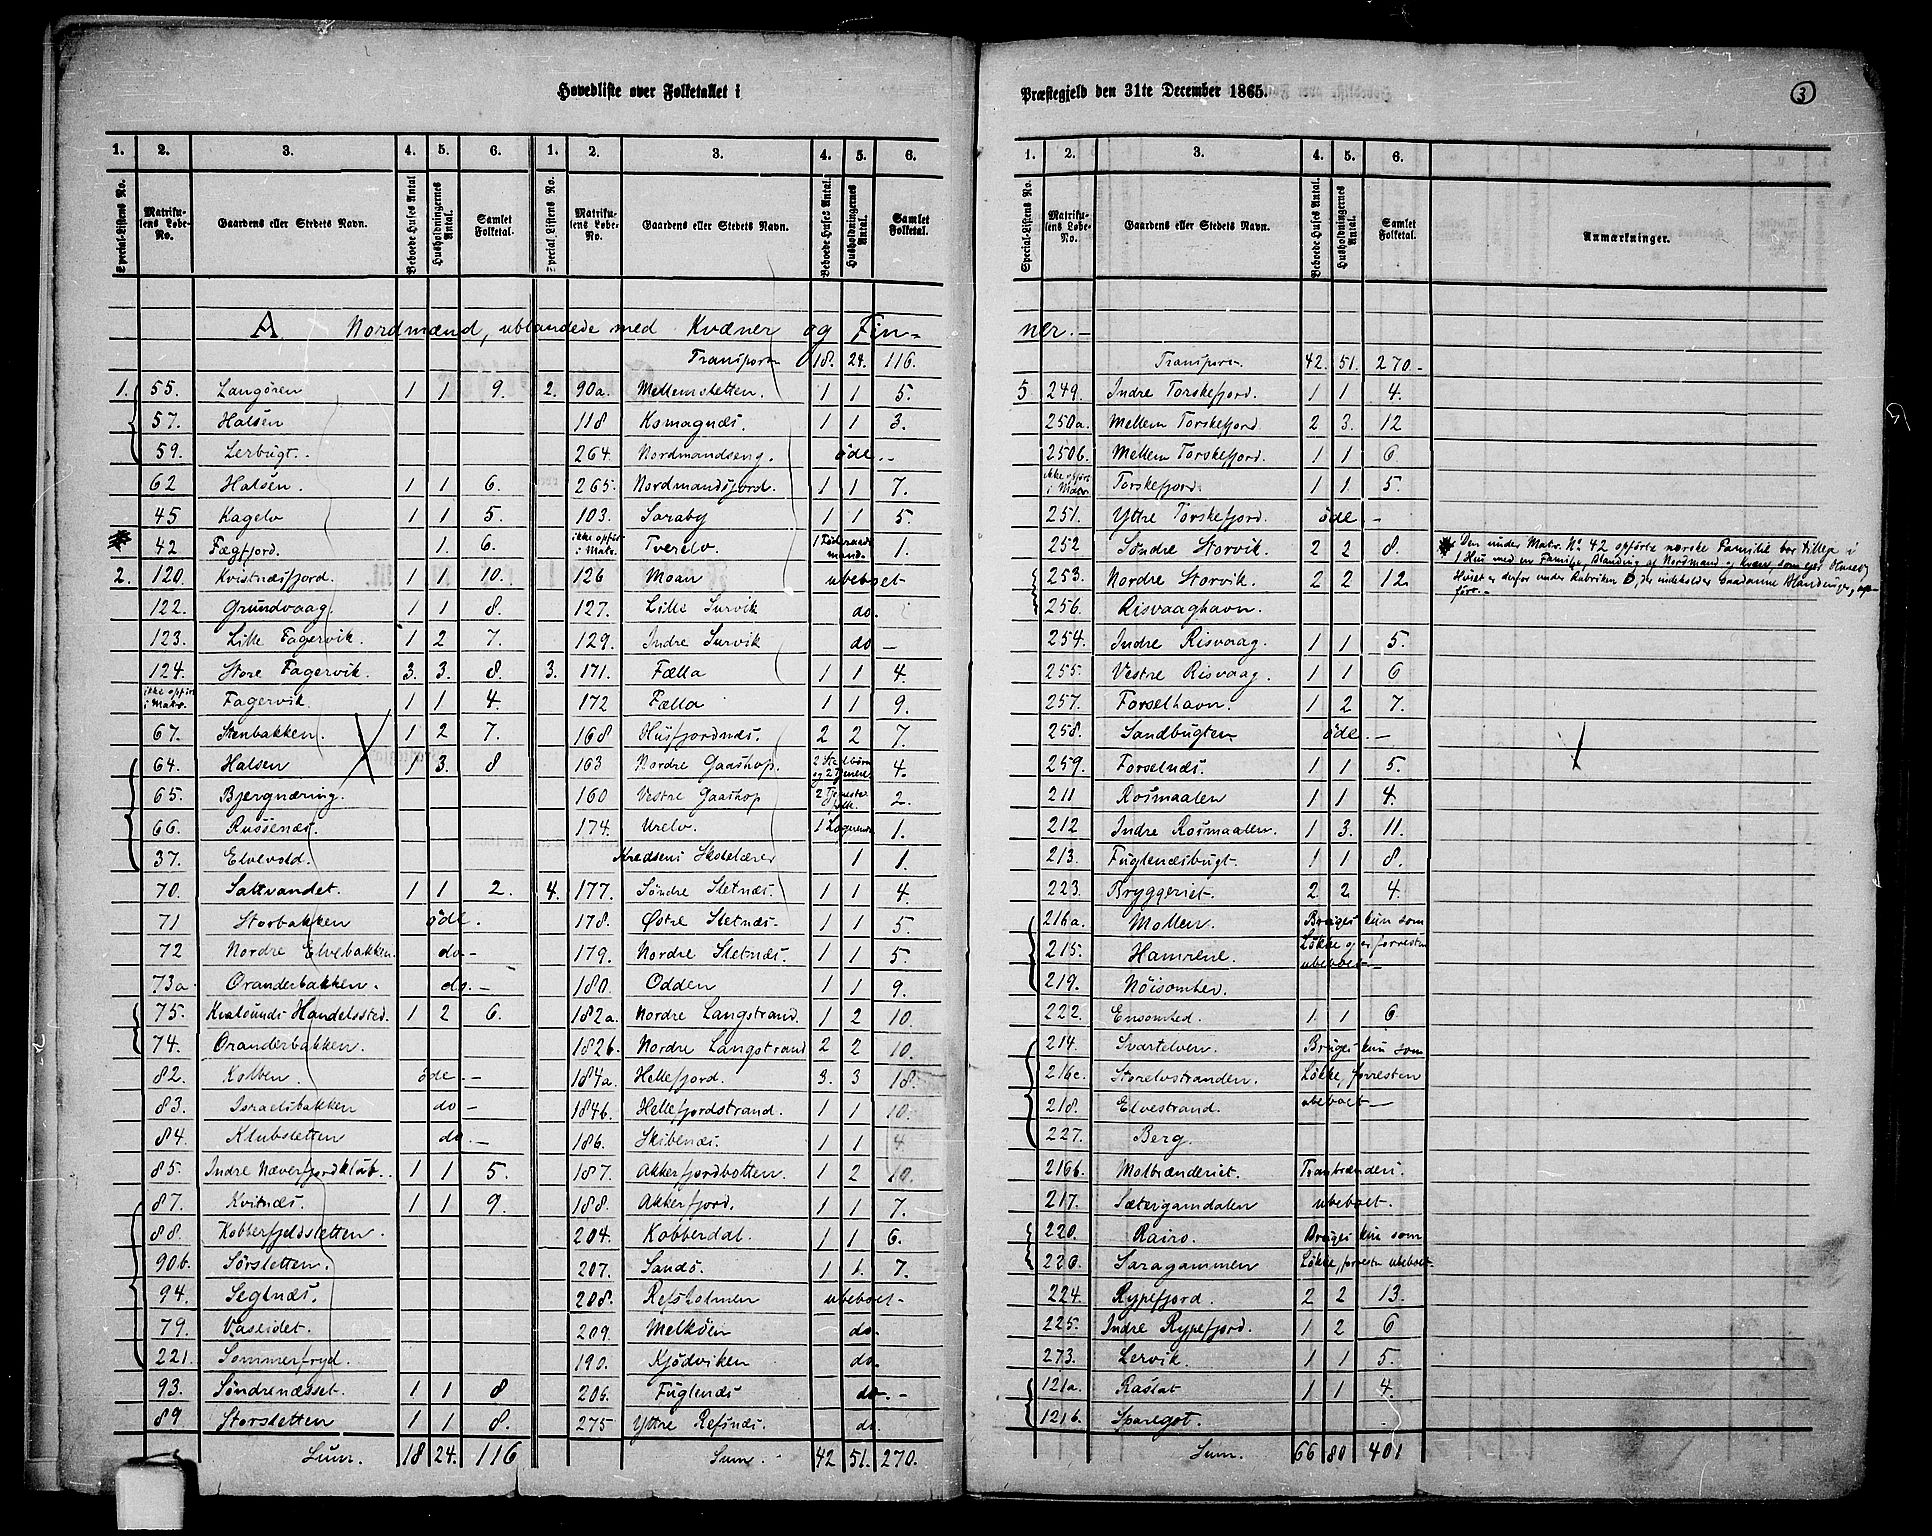 Hovedliste over Folketallet i Præstegjeld den 31te December 1865. 3
1. 2. 3. 4. 5. 6. 1. 2. 3. 4. 5. 6.
Special-Listens No. Matrikulens Løbe-No. Gaardens eller Stedets Navn. Beboede Huses Antal Husholdningernes Antal. Samlet Folketal. Special-Listens No. Matrikulens Løbe-No. Gaardens eller Stedets Navn. Beboede Huses Antal. Husholdningernes Antal. Samlet Folketal.
A Nordmænd, ublandede med Kvæner og Fin-
1. 55. Langören 1 1 9.
57. Halsen
59. Lerbugt.
62 Halsen. 1 1 6.
45 Kagelv 1 1 5.
42 Fægfjord. 1 6.
2. 120. Kvistnæsfjord. 1 1 10.
122. Grundvaag. 1 1 8.
123. Lille Fagervik. 1 2 7.
124. Store Fagervik. 3. 3. 8
ikke opført i Matr. Fagervik. 1 1 4.
67. Stenbakken 1 2 7.
64. Halsen 1 3. 8
65. Bjergnæring.
66. Russenæs.
37. Elvevold.
70. Saltvandet. 1 1 2.
71 Storbakken öde.
72 Nordre Elvebakken. do-
73a Oranderbakken. do.-
75. Kvalsunds Handelssted. 1 2 6.
74. Oranderbakken.
82. Kolben. öde.-
83. Israelsbakken do-
84. Klubsletten do.-
85. Indre Næverfjordklub. 1 1 5.
87. Kvitnæs. 1 1 9.
88. Kobberfjeldsletten.
90b. Sörsletten.
94. Seglnæs.
79. Vaseidet.
221. Sommerfryd.
93. Söndrenæsset. 1 1 8
89. Storsletten 1 1 8.
Sum. 18 24. 116
Transport 18. 24. 116.
2. 90a. Mellemsletten. 1 1 5.
118 Komagnæs. 1 1 3.
264. Nordmandseng. öde.-
265. Nordmandsfjord. 1 1 7.
103. Saraby 1 1 5.
ikke opført i Matr. Tverelv. 1 1.
126 Moan ubeboet
127. Lille Survik do.
129. Indre Survik do-
3. 171. Fælla 1 1 4.
172 Fælla 1 1 9.
168 Husfjordnæs. 2 2 7.
163 Nordre Gaashop. 4.
160 Vestre Gaashop 2 Tjenestefolk. 2.
174. Urelv. 1 Logerende 1.
Kredsens Skolelærer 1 1.
4. 177. Söndre Sletnæs. 1 1 4
178. Östre Sletnæs. 1 1 5.
179. Nordre Sletnæs. 1 1 5.
180. Odden 1 1 9.
182a. Nordre Langstrand. 1 2 10.
182b. Nordre Langstrand 2 2 10.
184a. Hellefjord. 3. 3 18.
184b. Hellefjordstrand. 1 1 10
186. Skibenæs. 1 1 4
187. Akkerfjordbotten. 1 2 10.
188. Akkerfjord. 1 1 7.
204. Kobberdal. 1 1 6.
207. Sandö. 1 1. 7.
208. Refsholmen ubeboet-
209. Melköen do.
190. Kjödviken do-
206. Fuglenæs do.-
275 Yttre Refsnæs. do.
Sum. 42 51. 270.
1. 2. 3. 4. 5. 6.
Special-Listens No. Matrikulens Løbe-No. Gaardens eller Stedets Navn. Beboede Huses Antal. Husholdningernes Antal. Samlet Folketal. Anmærkninger.
ner.-
Transport 42. 51. 270.-
5 249. Indre Torskefjord. 1 1 4.
250a. Mellem Torskefjord 2 3. 12
250b. Mellem Torskefjord. 1 1 6
ikke opført i Matr. Torskefjord. 1 1 5.
251. Yttre Torskefjord. öde -
252 Söndre Storvik. 2 2 8.
253. Nordre Storvik. 2 2 12.
256. Risvaaghavn.
254. Indre Risvaag. 1 1 5.
255. Vestre Risvaag. 1 1 6
257. Forselhavn. 1 2 7.
258. Sandbugten öde.-
259. Forselnæs. 1 1 5.
211 Rosmaalen 1 1 4.
212 Indre Rosmaalen. 1 3. 11.
213. Fuglenæsbugt. 1 1 8.
223. Bryggeriet. 2 2 4.
216a. Mollen. Bruges kun som
215. Hamrene. Løkke og er forresten
219. Nöisomhed. ubeboet-
222. Ensomhed. 1 1 6.
214. Svartelven. Bruges kun som
216c. Storelvstranden. Løkke, forresten
218. Elvestrand. ubeboet-
227. Berg.
216b. Molbrænderiet. Tranbrænderi.
217. Sætergamdalen ubeboet.
220. Rairo. Bruges kun som
226. Saragammen Løkke, forresten ubeboet-
224. Rypefjord. 2 2 13.
225. Indre Rypefjord. 1 2 6
273. Lervik. 1 1 5.
121a. Raslat 1 1 4.
121b. Sparegot.
Sum. 66 80 401
Den under Matr. No. 42 opførte norske Familie bor tilleje i
1 Hus med en Familje, Blanding af Nordmand og Kvæn, som ejer Huset.
Huset er derfor under Rubriken D, der indeholder saadanne Blandinger, op-
ført.-